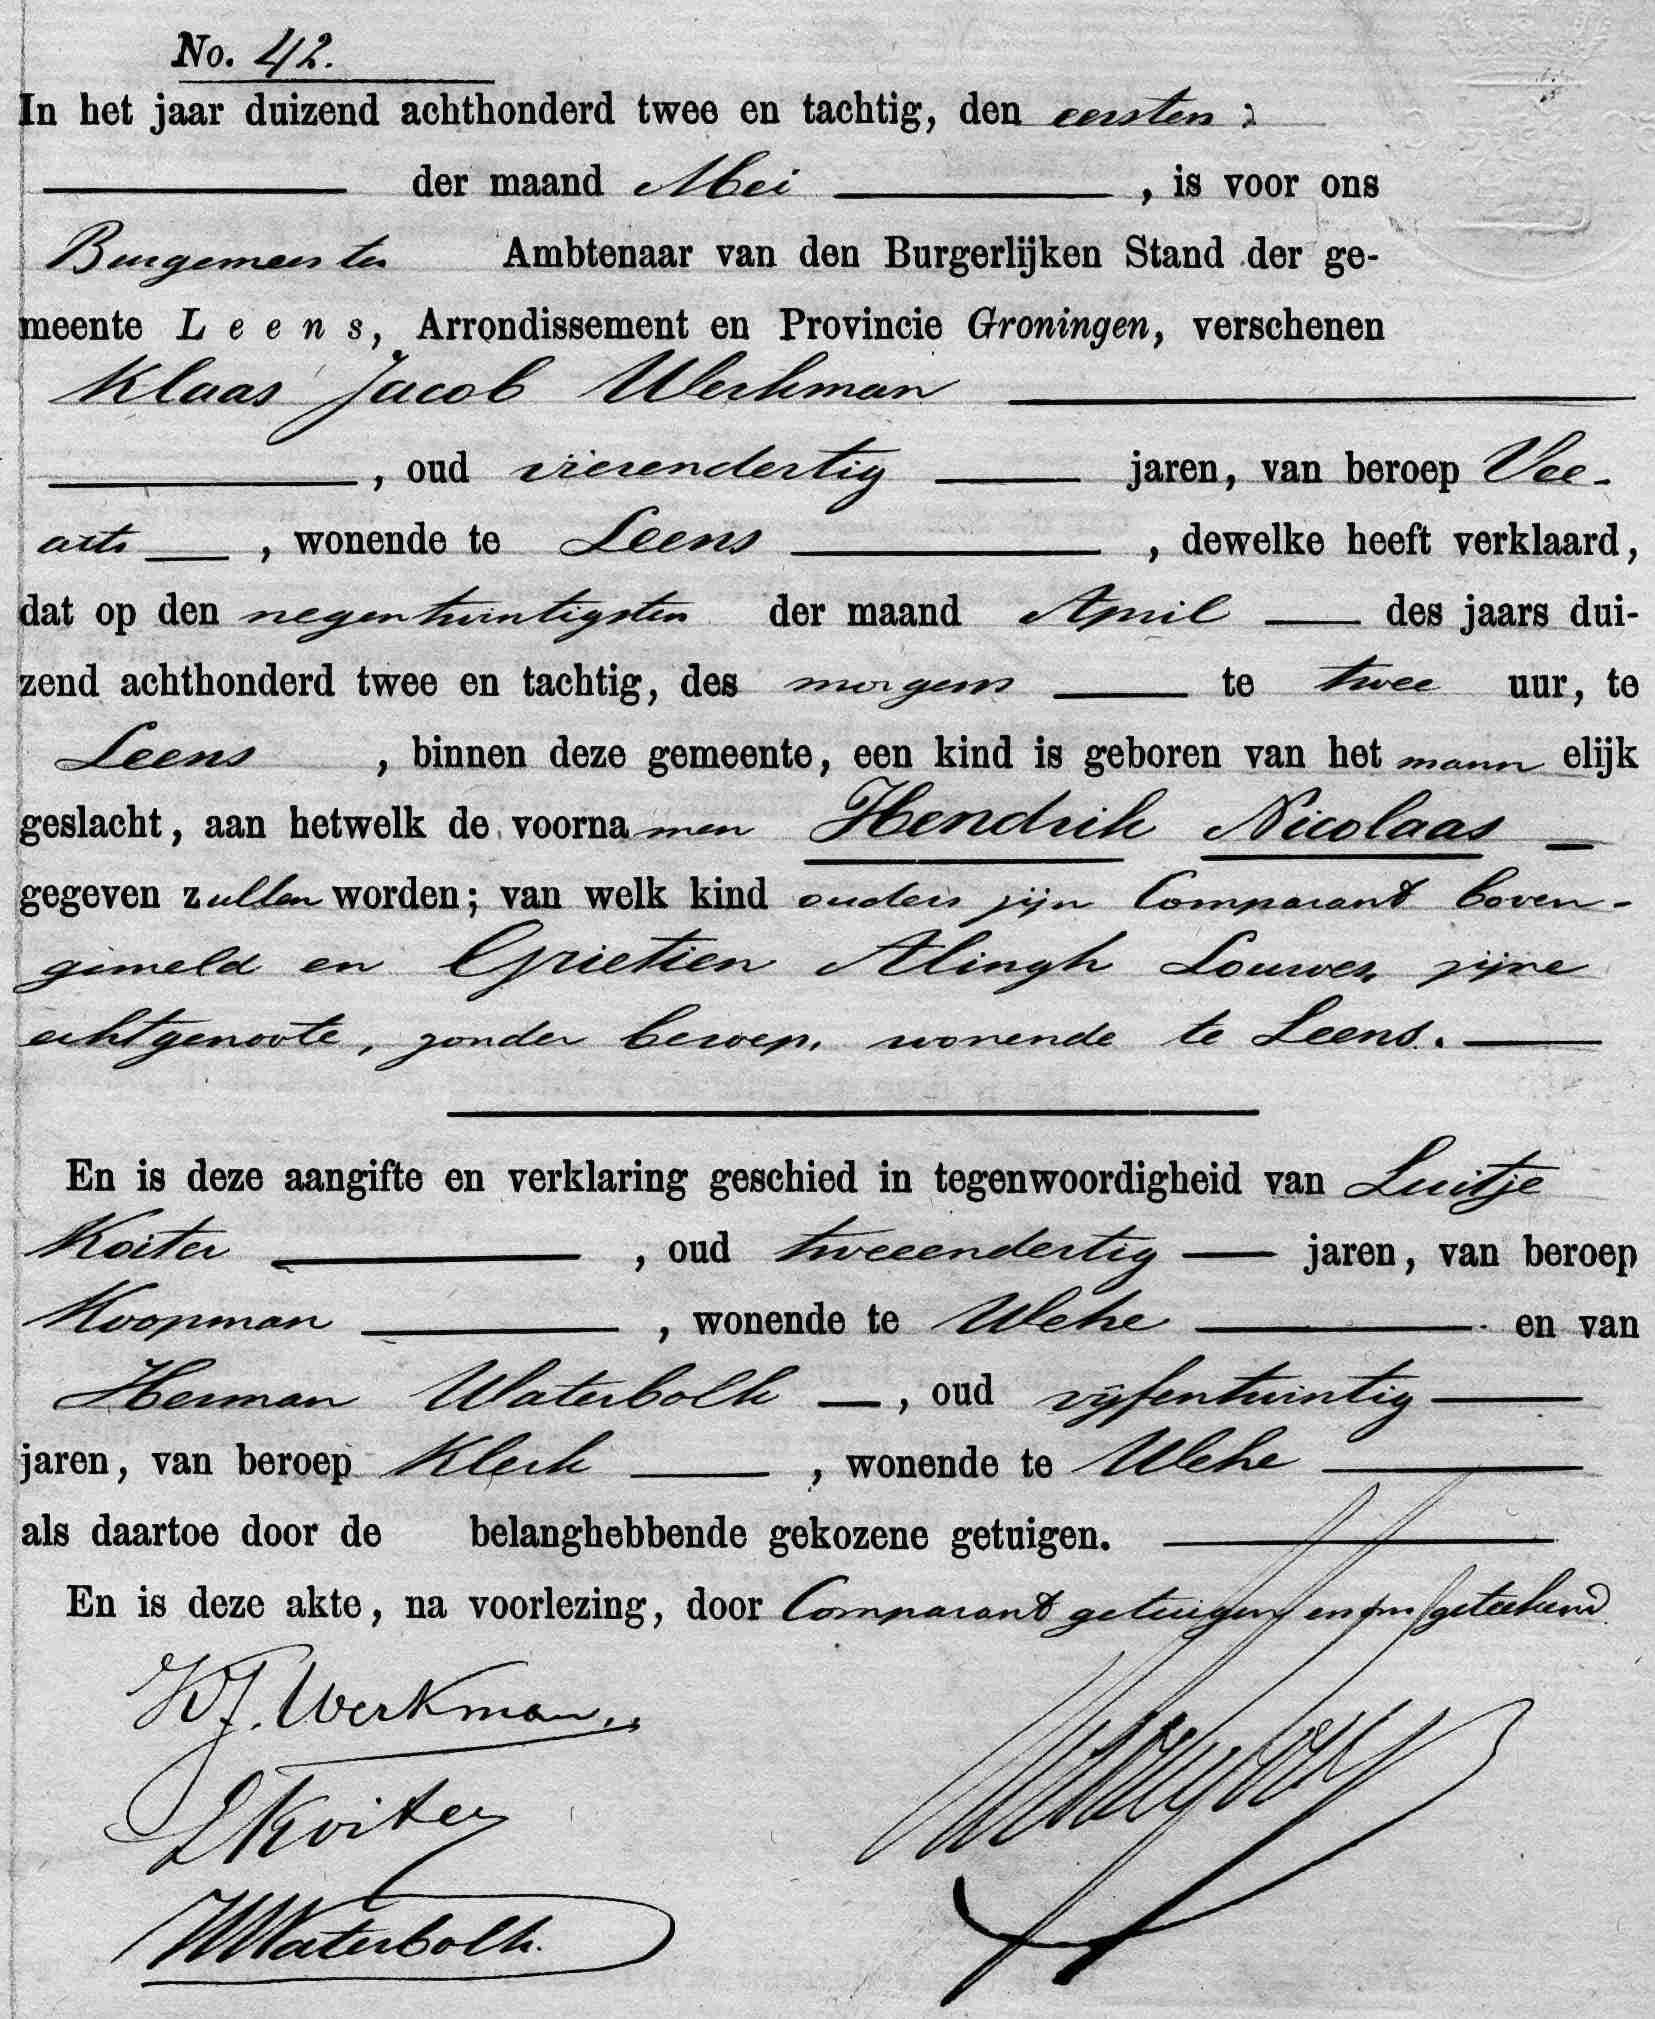 No. 42.
In het jaar duizend achthonderd twee en tachtig, den eersten
der maand Mei, is voor ons
Burgemeester Ambtenaar van den Burgerlijken Stand der ge-
meente Leens, Arrondissement en Provincie Groningen, verschenen
Klaas Jacob Werkman
, oud vierendertig jaren, van beroep Vee-
arts, wonende te Leens, dewelke heeft verklaard,
dat op den negentwintigsten der maand April des jaars dui-
zend achthonderd twee en tachtig, des morgens te twee uur, te
Leens, binnen deze gemeente, een kind is geboren van het mannelijk
geslacht, aan hetwelk de voornamen Hendrik Nicolaas
gegeven zullen worden; van welk kind ouders zijn Comparant boven-
gemeld en Grietien Alingh Louwes, zijne
echtgenoote, zonder beroep, wonende te Leens.
En is deze aangifte en verklaring geschied in tegenwoordigheid van Luitje
Koiter, oud tweeendertig jaren, van beroep
Koopman, wonende te Wehe en van
Herman Waterbolk, oud vijfentwintig
jaren, van beroep Klerk, wonende te Wehe
als daartoe door de belanghebbende gekozene getuigen.
En is deze akte, na voorlezing, door Comparant getuigen en ons geteekend
KJ. Werkman
L Koiter
H Waterbolk.